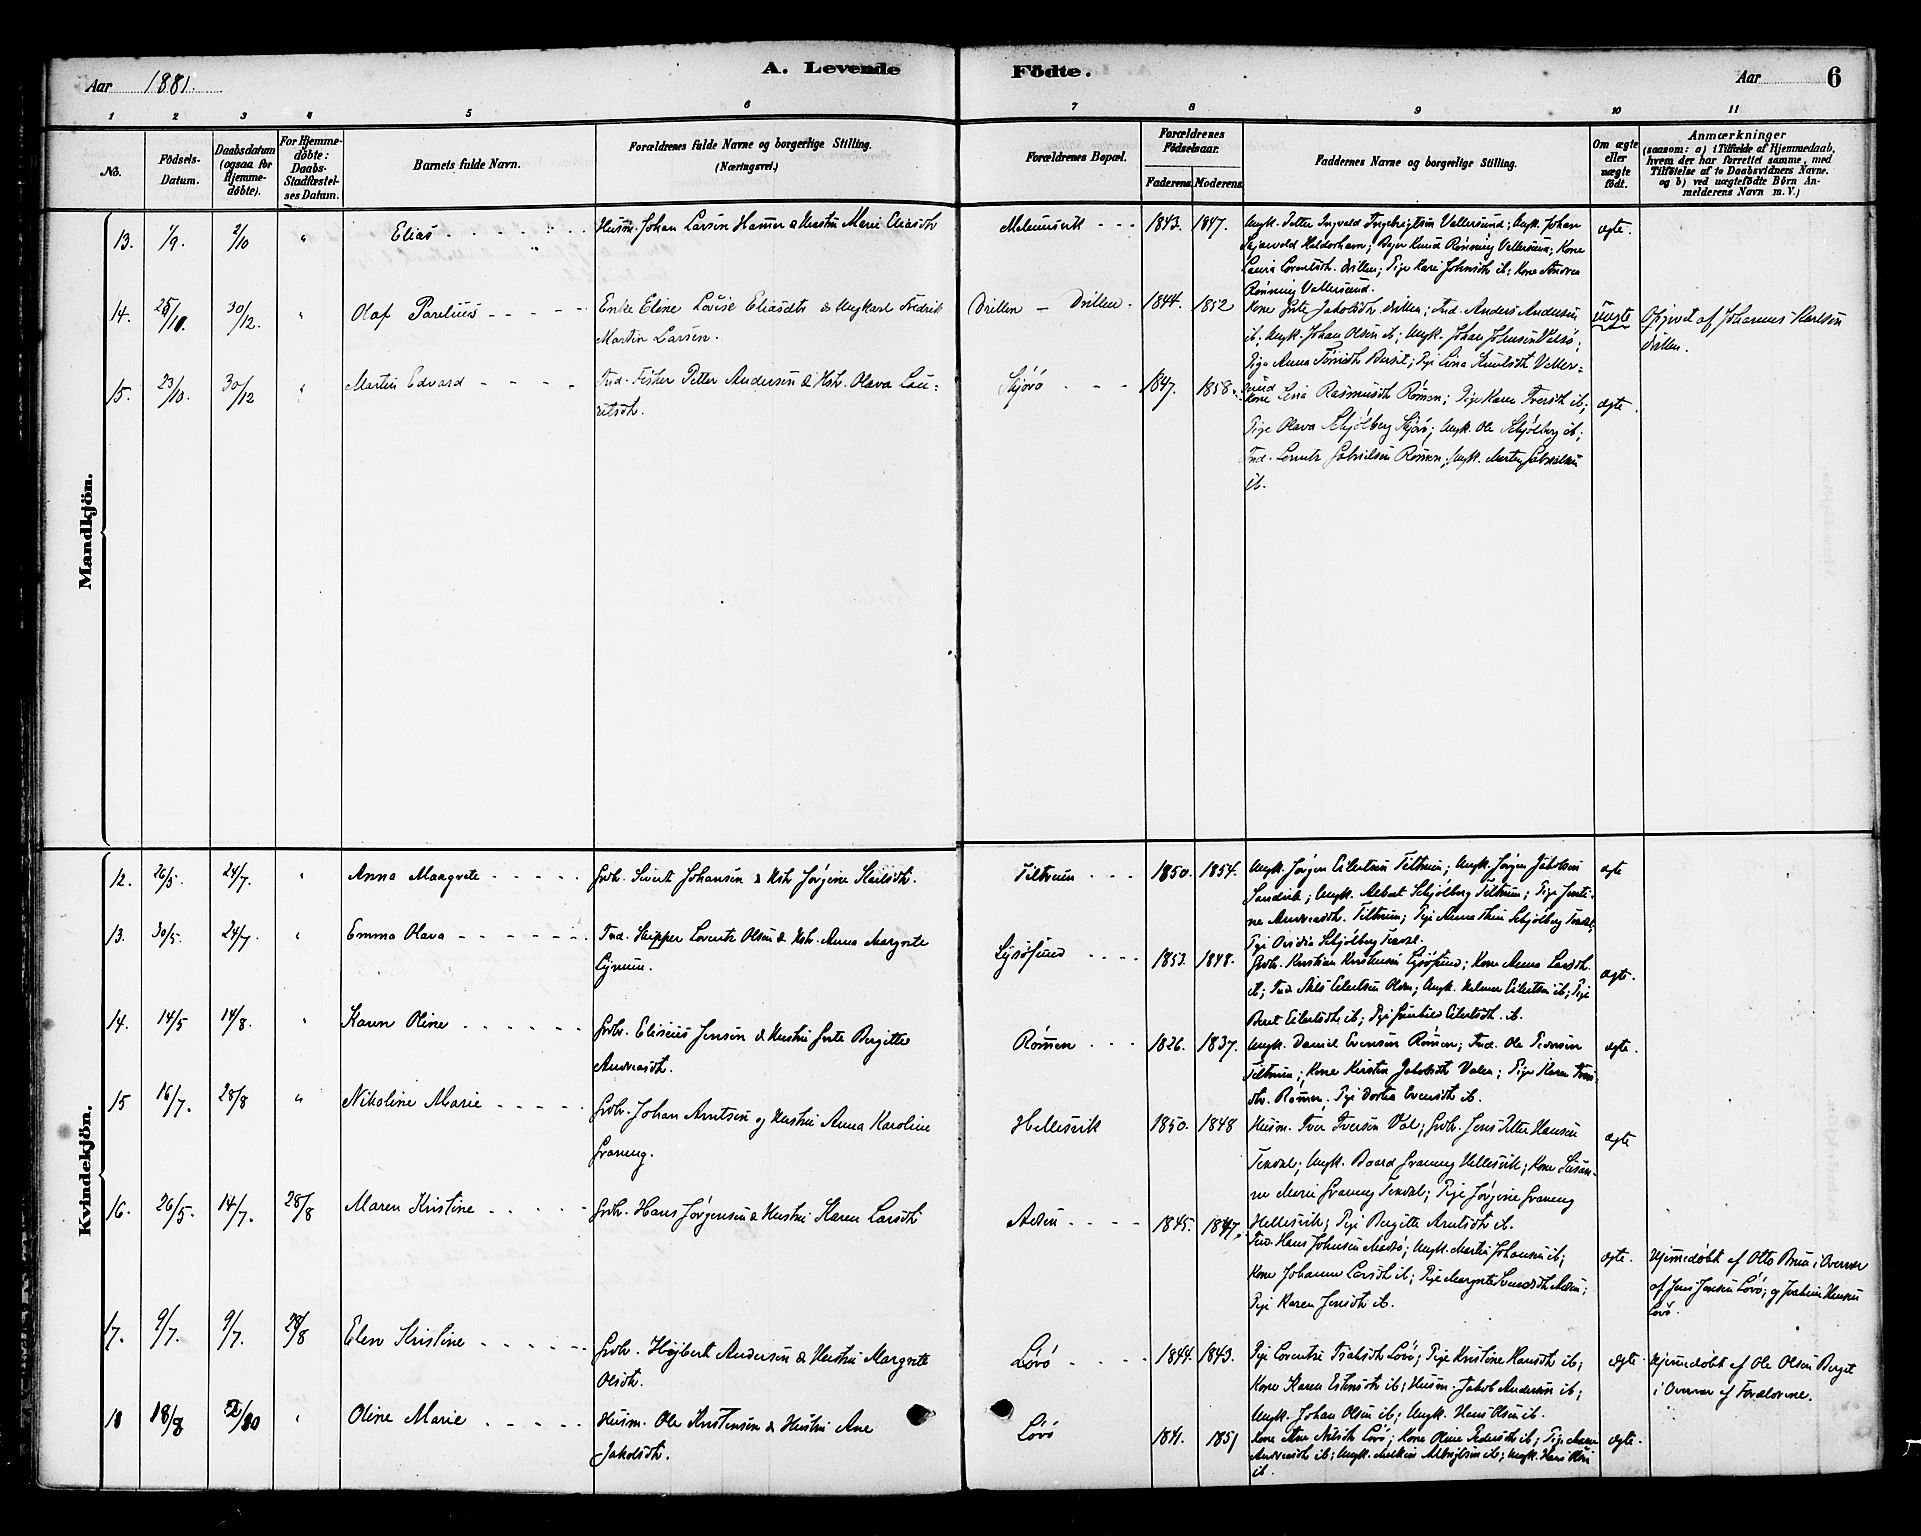 Aar 1881.
A. Levende
Födte.
Aar
6
1 2 3 4 5 6 7 8 9 10 11
No.
Födsels-
Datum.
Daabsdatum
(ogsaa for
Hjemme-
döbte).
For Hjemme-
döbte:
Daabs-
Stadfæstel-
ses Datum.
Barnets fulde Navn.
Forældrenes fulde Navne og borgerlige Stilling.
(Næringsvei.)
Forældrenes Bopæl.
Forældrenes
Födselsaar.
Faderens
Moderens
Faddernes Navne og borgerlige Stilling.
Om ægte
eller
uægte
födt.
Anmærkninger
(saasom: a) i Tilfælde af Hjemmedaab,
hvem der har forrettet samme, med
Tilföielse af to Daabsvidners Navne.
og b) ved uægtefödte Börn An-
melderens Navn m. V.)
Mandkjön.
13. 1/9. 2/10 " Elias
Husm. Johan Larsen Hamer & Hustru Marie Eliasdtr
1843. 1847.
Ungk. Petter Ingvald Ingebrigtsen Vallersund; Ungk. Johan
Rönning Vallersund.
ægte.
14. 25/10. 30/12. " Olaf Parelius
Enke Eline Lovise Eliasdtr & Ungkarl Fredrik
Martin Larsen.
Drillen - Drillen. 1844. 1852
Kone Grete Jakobsdtr Drillen; Ind. Anders Andersen
ib; Ungk. Johan Olsen ib; Ungk. Johan Johnsen Valsö;
uægte
Opgivet af Johannes Karlsen
Drillen.
15. 23/10. 30/12 " Martin Edvard
Ind. Fisker Petter Andersen & Hstr. Olava Lau-
ritsdtr.
1847. 1858.
Kone Lina Rasmusdtr Römen; Pige Karen Iversdtr ib;
Pige Olava Schjölberg; Ungk. Ole Schjölberg ib;
Ind. Lorents Gabrielsen Römen; Ungk. Morten Gabrielsen
ib.
ægte.
Kvindekjön.
12. 26/5. 24/7. " Anna Margrete
Grdbr. Sivert Johansen & Hstr Jörgine
Teltrum 1850. 1854.
Ungk. Jörgen Eilertsen Teltrum; Ungk. Jörgen Jakobsen
Sandvik; Ungk. Albert Schjölberg Teltrum; Pige
Andreasdtr. Teltrum; Pige Anna Schjölberg
Pige Ovidia Schjölberg
ægte
13. 30/5. 24/7. " Emma Olava
Ind. Skipper Lorents Olsen & Hstr. Anna Margrete
Lysösund 1853. 1848.
Grdbr. Kristian Kristensen Lysösund; Kone Anna Larsdtr.
ib; Ind. Nils Eilertsen Olden; Ungk. Helmer Eilertsen ib; Pige
Beret Eilertsdtr ib; Pige Eilertsdtr. ib.
ægte.
14. 14/5 14/8. " Karen Oline
Grdbr. Eliseus Jensen & Hustru Grete Bergitte
Andreasdtr.
Römen 1826. 1837.
Ungk. Daniel Evensen Römen; Ind. Ole Pedersen
Teltrum; Kone Kirstin Jakobsdtr Valen; Pige Karen Ivers-
dtr. Römen. Pige Dortea Evensdtr ib.
ægte.
15 16/7. 28/8 " Nikoline Marie
Grdbr. Johan Arntsen og Hustru Anna Karoline
Graneng.
Hellesvik 1850. 1848
Husm. Iver Iversen Val; Grdbr. Jens Petter Hansen
Baard Graneng Hellesvik; Kone Susan-
ne Marie Graneng; Pige Jörgine Graneng
Hellesvik; Pige Bergitte Arntsdtr ib.
ægte
16. 26/5. 14/7. 28/8 Maren Kristine
Grdbr. Hans Jörgensen & Hustru Karen Larsdtr
1845. 1847.
Ind. Hans Johnsen; Ungk. Martin Johansen ib;
Kone Johanna Larsdtr ib; Pige Margrete
Pige Karen Jensdtr ib.
ægte.
Hjemmedöbt af Otto Bruu i Overvær
af Jens Jensen Lövö; og Joakim Hansen
Lövö.
17. 9/7. 9/7. 28/8 Elen Kristine
Grdbr. Höjbert Andersen & Hustru Margrete
Olsdtr.
Lövö 1844. 1843.
Pige Lorentse Isaksdtr Lövö; Pige Kristine Hansdtr ib;
Kone Karen Estensdtr ib; Husm. Jakob Andersen ib;
Ungk. Johan Olsen ib; Ungk. Hans Olsen ib.
ægte
Hjemmedöbt af Ole Olsen Berget
i Overvær af Forældrene.
18 18/8 2/10 " Oline Marie
Husm. Ole Kristensen & Hustru Ane
Jakobsdtr.
Lövö 1841. 1851
Kone Ane Nilsdtr Lövö; Kone Oline Pedersdtr ib; Pige Maren
Andreasdtr ib; Ungk.
ib.
ægte.